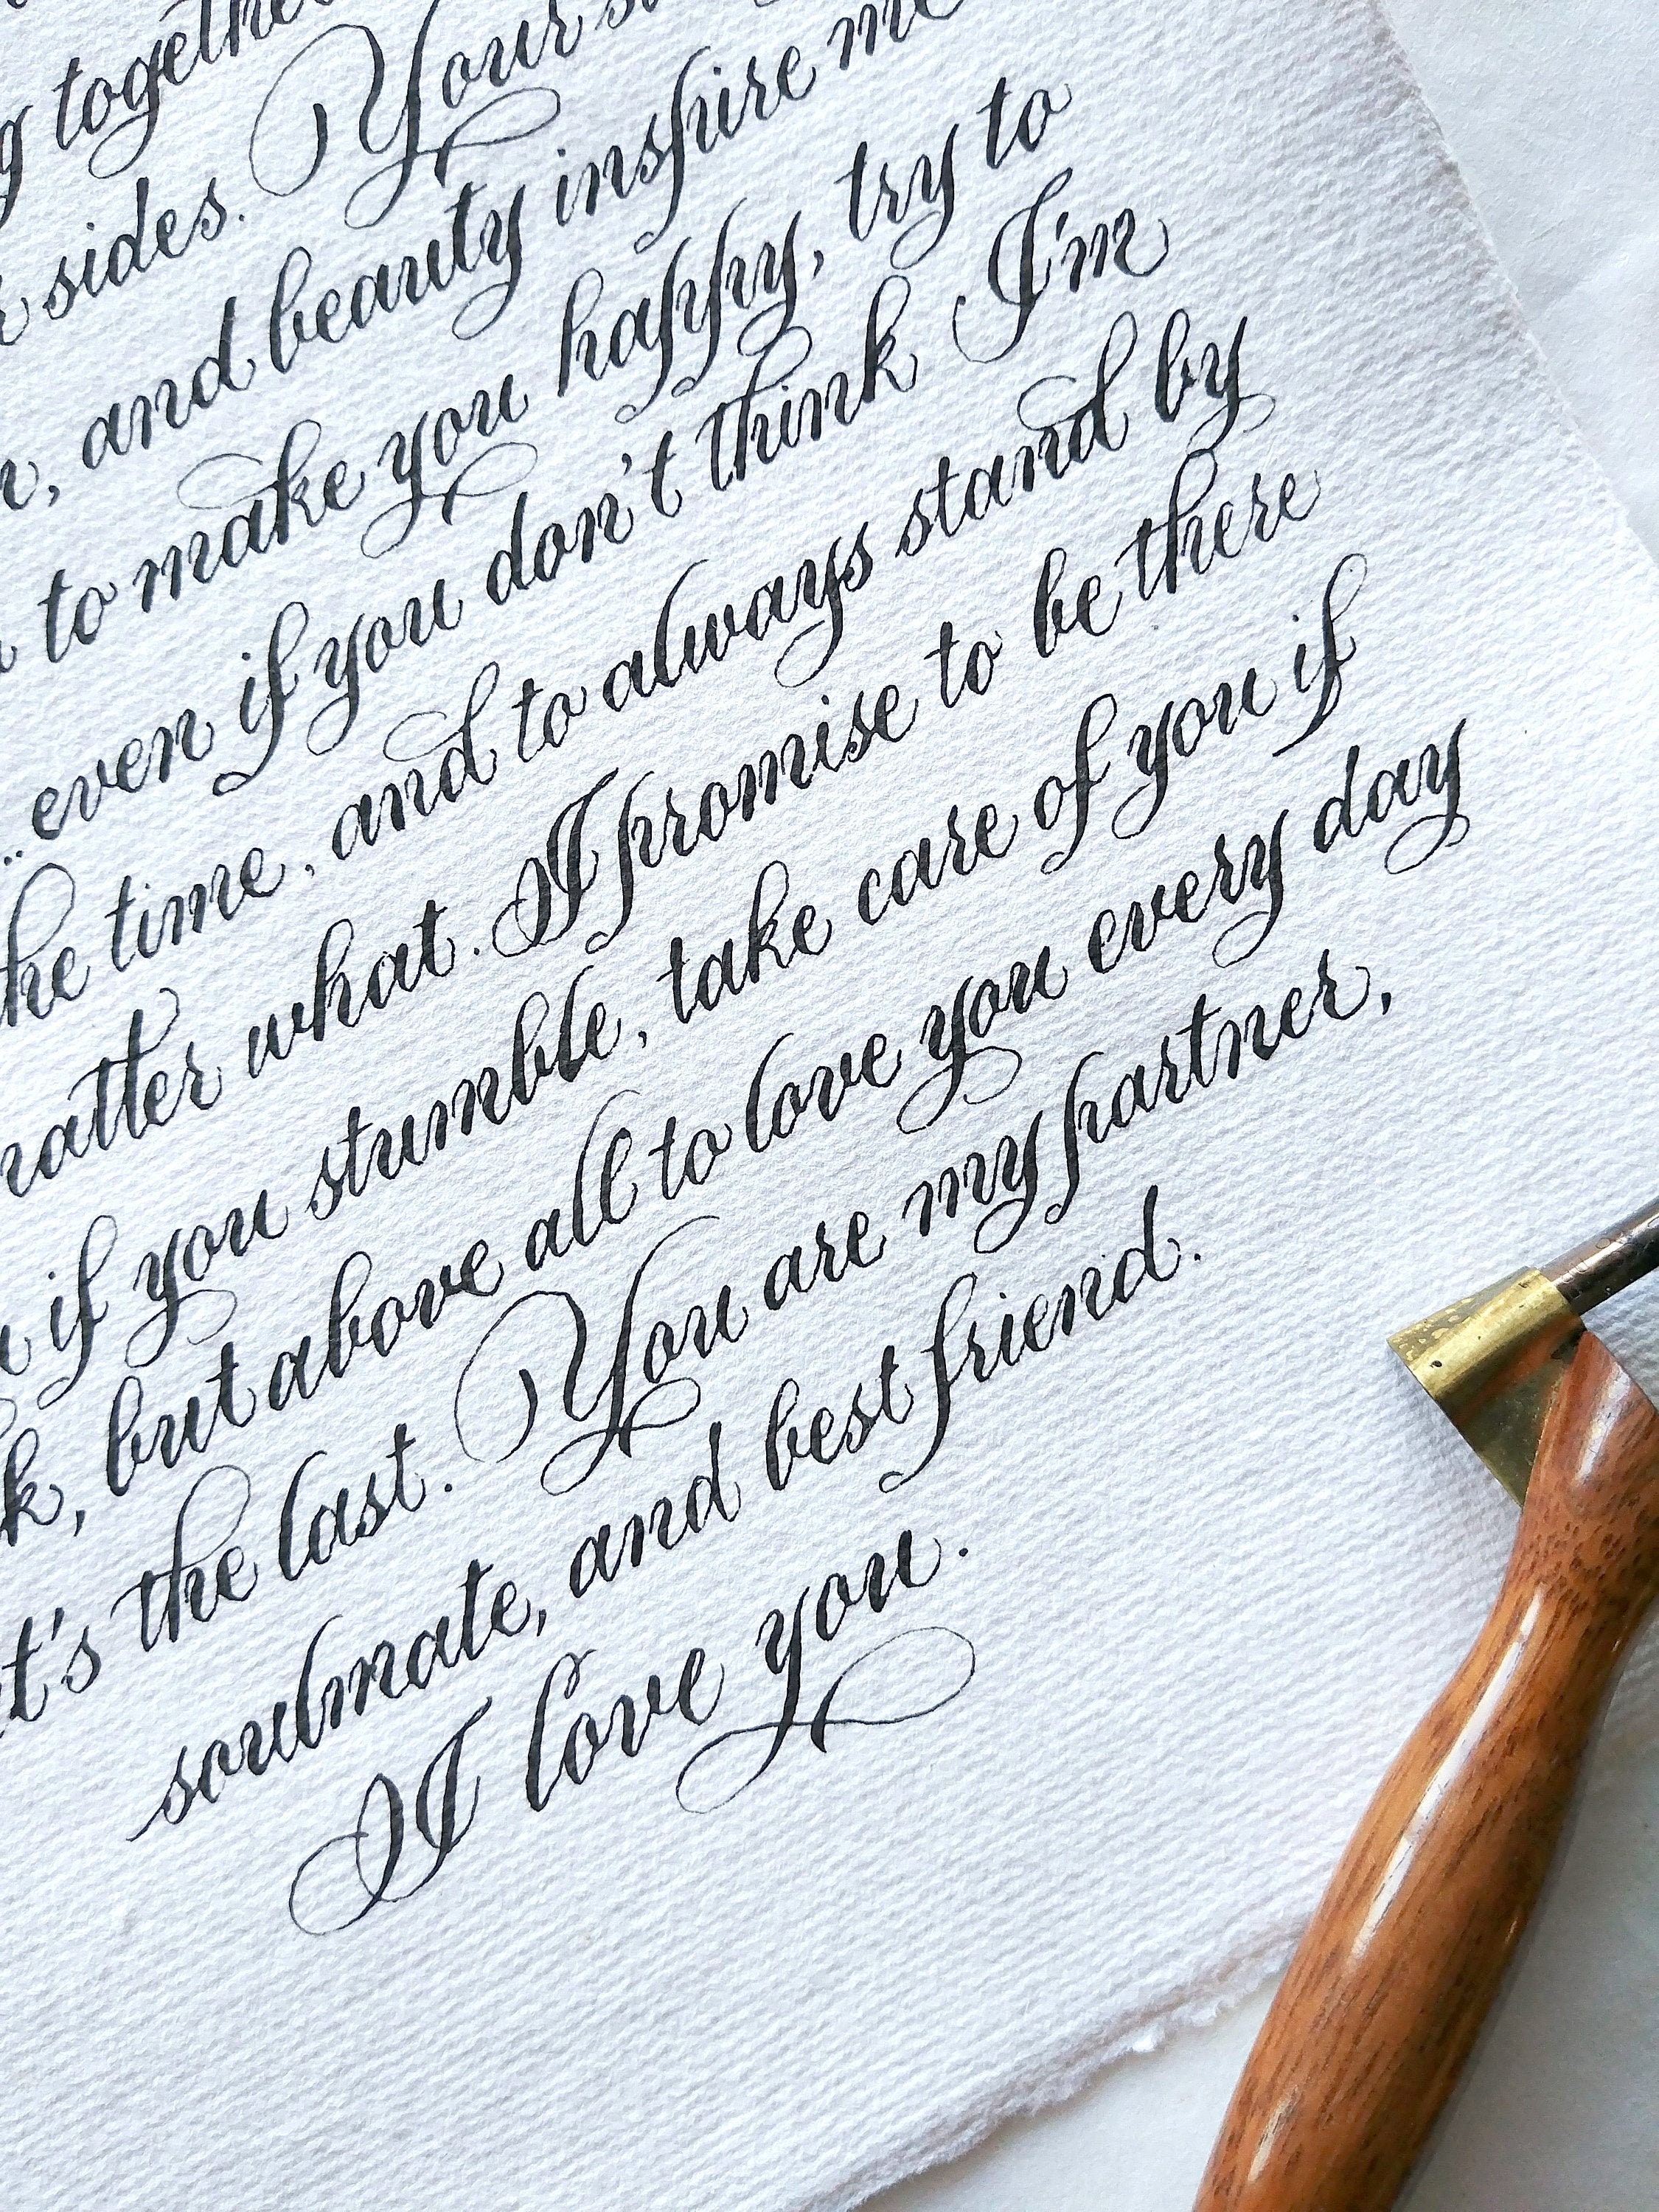 together
sides. Your
and beauty inspire me
to make you happy, try to
... even if you don't think I'm
time, and to always stand by
what. I promise to be there
if you stumble, take care of you if
but above all to love you every day
the last. You are my partner,
soulmate, and best friend.
I love you.